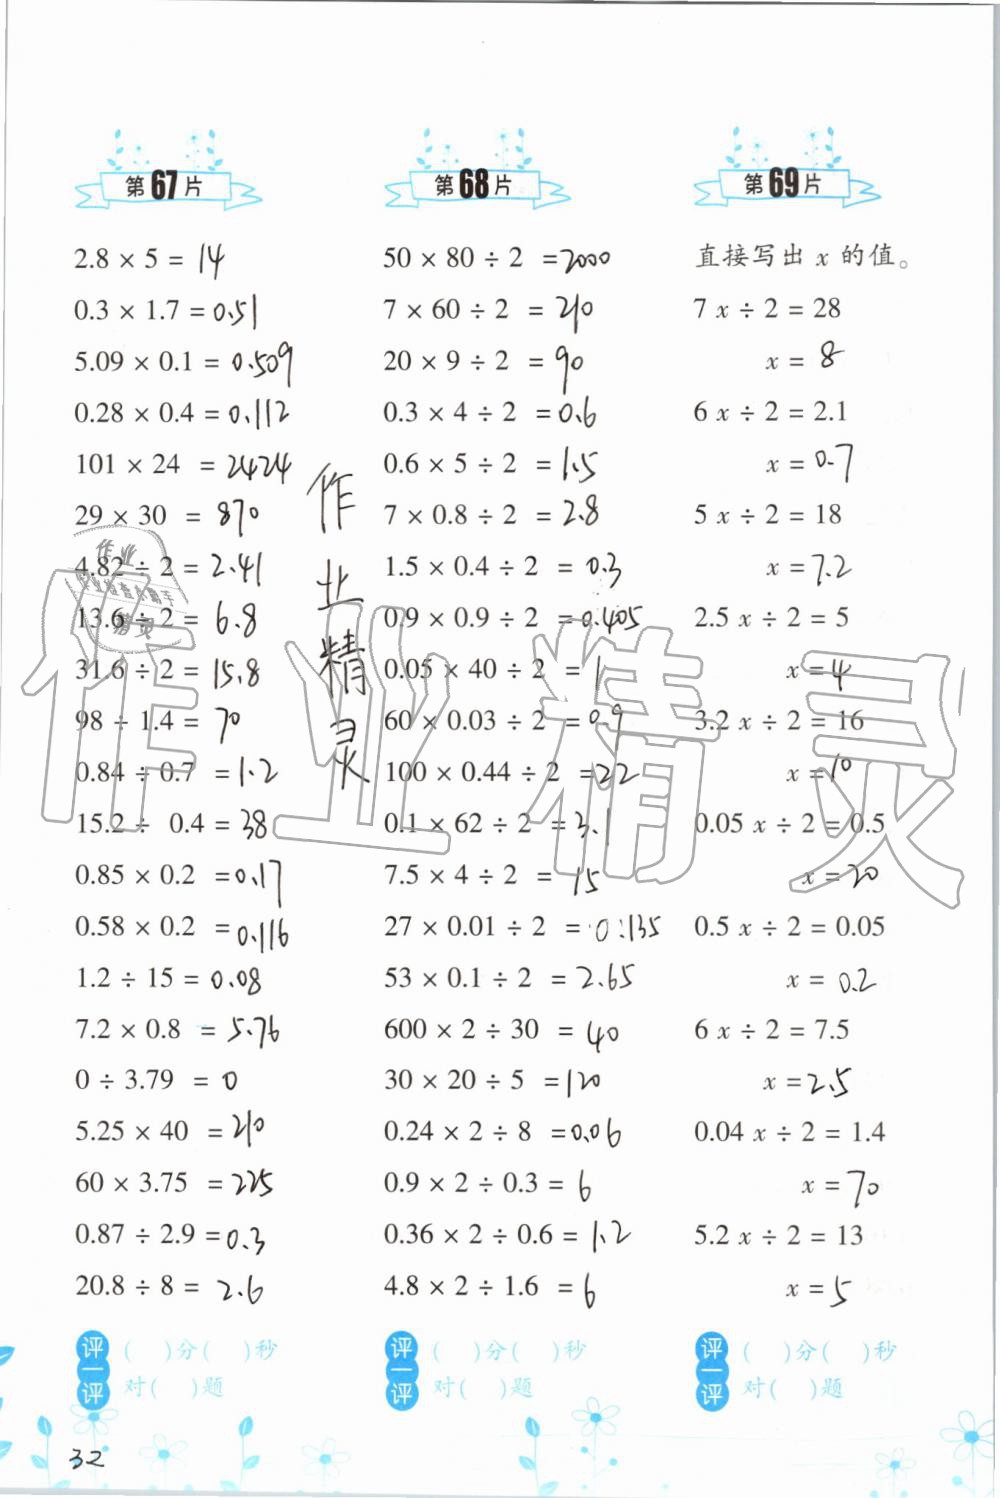 第67片
2.8 × 5 = 14
0.3 × 1.7 = 0.51
5.09 × 0.1 = 0.509
0.28 × 0.4 = 0.112
101 × 24 = 2424
29 × 30 = 870
4.82 ÷ 2 = 2.41
13.6 ÷ 2 = 6.8
31.6 ÷ 2 = 15.8
98 ÷ 1.4 = 70
0.84 ÷ 0.7 = 1.2
15.2 ÷ 0.4 = 38
0.85 × 0.2 = 0.17
0.58 × 0.2 = 0.116
1.2 ÷ 15 = 0.08
7.2 × 0.8 = 5.76
0 ÷ 3.79 = 0
5.25 × 40 = 210
60 × 3.75 = 225
0.87 ÷ 2.9 = 0.3
20.8 ÷ 8 = 2.6
评一评 ( )分( )秒
对( )题
第68片
50 × 80 ÷ 2 = 2000
7 × 60 ÷ 2 = 210
20 × 9 ÷ 2 = 90
0.3 × 4 ÷ 2 = 0.6
0.6 × 5 ÷ 2 = 1.5
7 × 0.8 ÷ 2 = 2.8
1.5 × 0.4 ÷ 2 = 0.3
0.9 × 0.9 ÷ 2 = 0.405
0.05 × 40 ÷ 2 = 1
60 × 0.03 ÷ 2 = 0.9
100 × 0.44 ÷ 2 = 22
0.1 × 62 ÷ 2 = 3.1
7.5 × 4 ÷ 2 = 15
27 × 0.01 ÷ 2 = 0.135
53 × 0.1 ÷ 2 = 2.65
600 × 2 ÷ 30 = 40
30 × 20 ÷ 5 = 120
0.24 × 2 ÷ 8 = 0.06
0.9 × 2 ÷ 0.3 = 6
0.36 × 2 ÷ 0.6 = 1.2
4.8 × 2 ÷ 1.6 = 6
评一评 ( )分( )秒
对( )题
第69片
直接写出 x 的值。
7 x ÷ 2 = 28
x = 8
6 x ÷ 2 = 2.1
x = 0.7
5 x ÷ 2 = 18
x = 7.2
2.5 x ÷ 2 = 5
x = 4
3.2 x ÷ 2 = 16
x = 10
0.05 x ÷ 2 = 0.5
x = 20
0.5 x ÷ 2 = 0.05
x = 0.2
6 x ÷ 2 = 7.5
x = 2.5
0.04 x ÷ 2 = 1.4
x = 70
5.2 x ÷ 2 = 13
x = 5
评一评 ( )分( )秒
对( )题
作业精灵
作业精灵
32